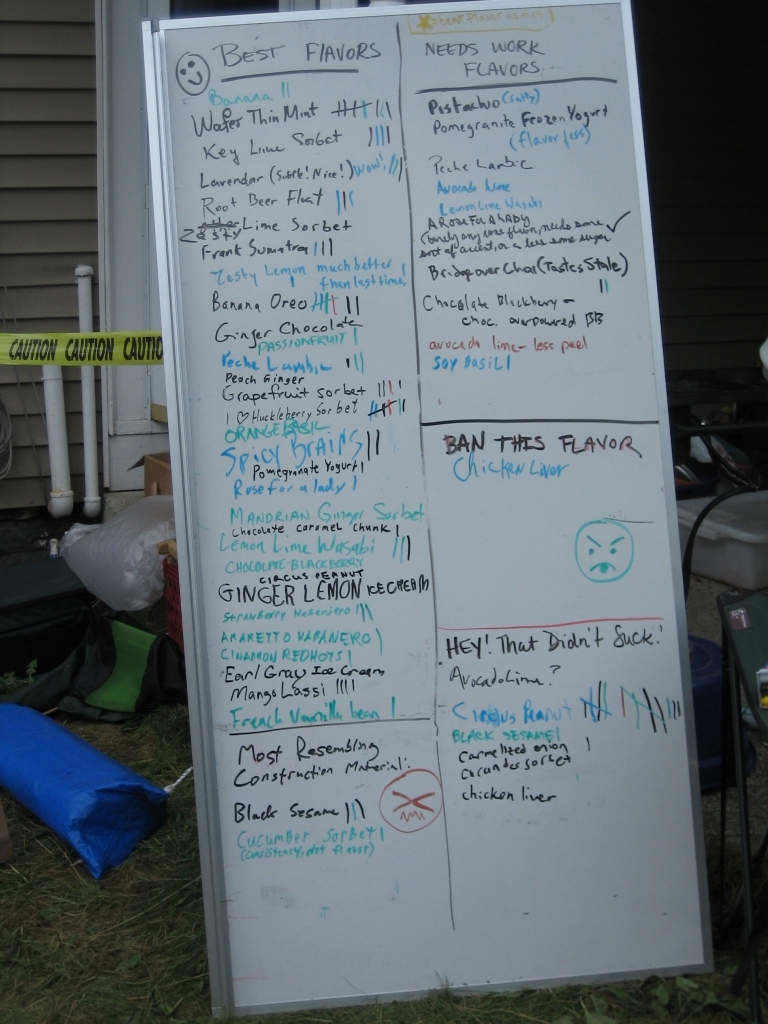 best flavor names
BEST FLAVORS
Banana
Wafer Thin Mint
Key Lime Sorbet
Lavendar (Subtle! Nice!) wow!
Root Beer Float
Zesty Lime Sorbet
Frank Sumatra
Zesty Lemon much better
than last time!
Banana Oreo
Ginger Chocolate
PASSIONFRUIT
Peche Lambic
Peach Ginger
Grapefruit sorbet
I ♡ Huckleberry Sorbet
ORANGE BASIL
SPICY BRAINS
Pomegranate Yogurt
Rose for a lady
MANDRIAN Ginger Sorbet
Chocolate caramel chunk
Lemon Lime Wasabi
CHOCOLATE-BLACKBERRY
CIRCUS PEANUT
GINGER LEMON ICE CREAM
Strawberry Habenjero
AMARETTO HABANERO
CINNAMON REDHOTS
Earl Gray Ice Cream
Mango Lassi
French Vanilla bean
Most Resembling
Construction Material:
Black Sesame
Cucumber Sorbet
(consistency, not flavor)
NEEDS WORK
FLAVORS
Pistachio (salty)
Pomegranite Frozen Yogurt
(flavorless)
Peche Lambic
Avocado Lime
Lemon Lime Wasabi
A Rose For A Lady
(barely any rose flavor, needs some
sort of accent, or a less some sugar
Bridge over Chai (Tastes Stale)
Chocolate Blackberry -
choc. overpowered BB
avocado lime - less peel
SOY BASIL
BAN THIS FLAVOR
Chicken Liver
HEY! That Didn't Suck!
Avocado Lime?
Circus Peanut
BLACK SESAME
Carmelized onion
Coriander sorbet
chicken liver
CAUTION CAUTION CAUTIO